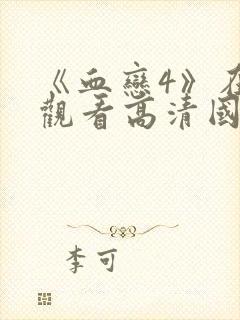 《血戀4》在
觀看高清國
李可